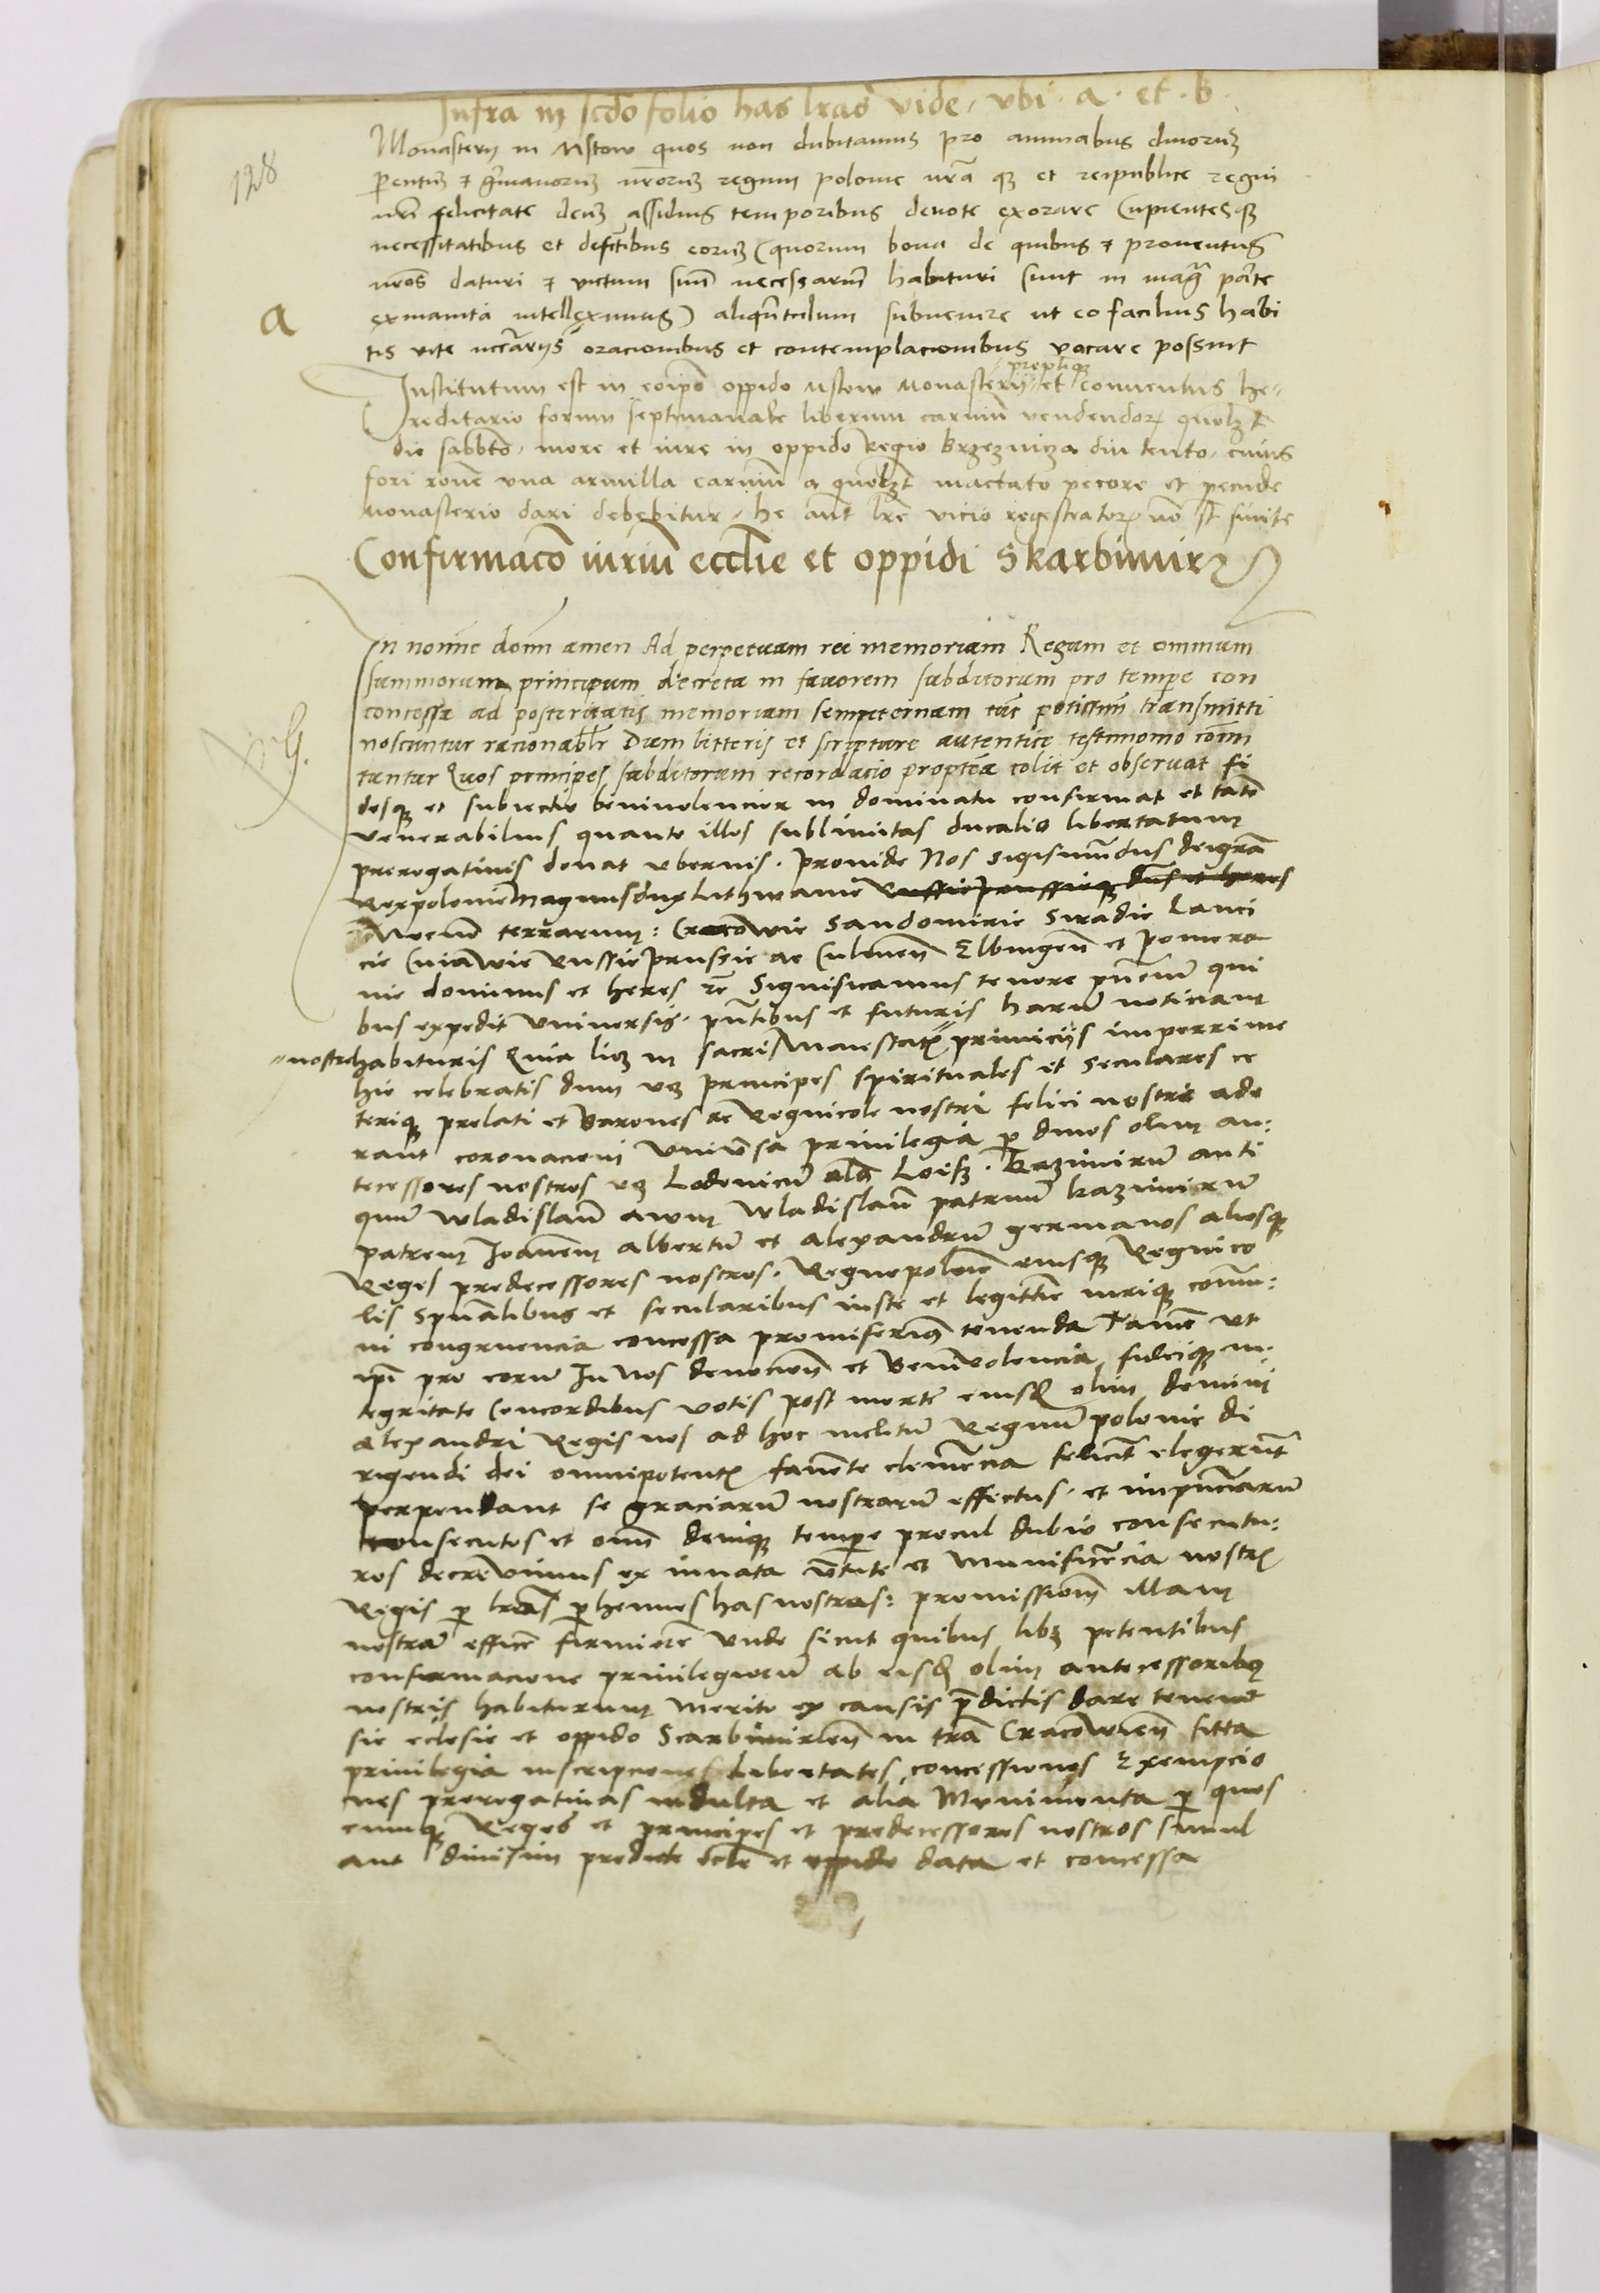 Infra in scdo folio has lras vide, vbi · a · et · b ·
128
Monasterij in Mstow quos non dubitamus pro animabus divorum
parentum et germanorum nrorum regum polonie nra que et reipublice regni
nri felicitate deum assiduis temporibus devote exorare Cupientesque
necessitatibus et defectibus eorum (quorum bona de quibus et proventus
nros daturi et victum suum necessarium habituri sunt in magna parte
exinanita intelleximus) aliquantulum subvenire ut eo facilius habi
a
tis vite necessariis oracionibus et contemplacionibus vacare possint
Institutum est in eoipo oppido Mstow Monasterij et conventus he-
reditario forum septimanale liberum carnium vendendor quolzt
die sabbto, more et iure in oppido Regio Brzeznicza diu tento, cuius
fori rone una armilla carnium a quolzt mactato pecore et pecude
Monasterio dari debebitur, he aut lre vicio regestrator no st finite
Confirmaco iurium ecclie et oppidi Skarbimirz
In nomine domi amen Ad perpetuam rei memoriam Regum et omnium
summorum principum decreta in favorem subditorum pro tempore con
concessa ad posteritatis memoriam sempiternam tunc potissimum transmitti
noscuntur racionablr Dum litteris et scripture autentice testimonio comm
G.
tuntur Quos principes subditorum recordacio propterea colit et observat fi
desque et subiectio benivolencior in dominatu confirmat et tanto
venerabilius quanto illos sublimitas ducalis libertatum
prerogativis donat uberius. proinde Nos Sigismundus dei gra
Rex polonie Magnus dux Lithwanie Russie prussieque dns et heres
Necnon terrarum: Cracowie Sandomirie Siradie Lanci
cie Cuiawie Russie prussie ac Culmen Elbingen et pomera
nie dominus et heres rc Significamus tenore pntium qui
bus expedit universis. pntibus et futuris harum noticiam
nostre habituris Quia licet in sacris Maiestatis primiciis imperrime
hic celebratis dum vz principes spirituales et seculares ce
terique prelati et Barones ac Regnicole nostri felici nostre ade
rant coronacioni universa privilegia per divos olim an:
tecessores nostros vz Lodovicum als Loisz. Kazimirum anti
quum Wladislaum avum Wladislaum patruum kazimirum
patrem Ioannem albertum et alexandrum germanos aliosque
Reges predecessores nostros. Regno polonie eiusque Regnico
lis spualibus et secularibus iuste et legittime iurique commu:
ni congruencia concessa promiserimus tenenda Tamen ut
ipi pro eorum In nos devocione et Benivolencia, fideique in:
tegritate Concordibus votis post mortem eiusd olim domini
alexandri Regis nos ad hoc inclitum Regnum polonie di
rigendi dei omnipotentis favente clemencia feliciter elegerunt
perpendant se graciarum nostrarum effectus. et impunciarum
consecutos et omni denique tempore procul dubio consecutu:
ros decrevimus ex innata virtute et Munificencia nostra
Regis per lras perhennes has nostras: promissionem illam
nostram efficere firmiorem Unde sicut quibus libz petentibus
confirmacione privilegiorum ab eisd olim antecessoribus
nostris habiturum Merito ex causis predictis dare tenemur
sic eclesie et oppido Scarbimirien in tra Cracowien sitta
privilegia inscripciones Libertates concessiones Exempcio
nes prerogativas indulta et alia Munimenta per quos
cumque Reges et principes et predecessores nostros simul
aut divisim predicte eclie et oppido data et concessa